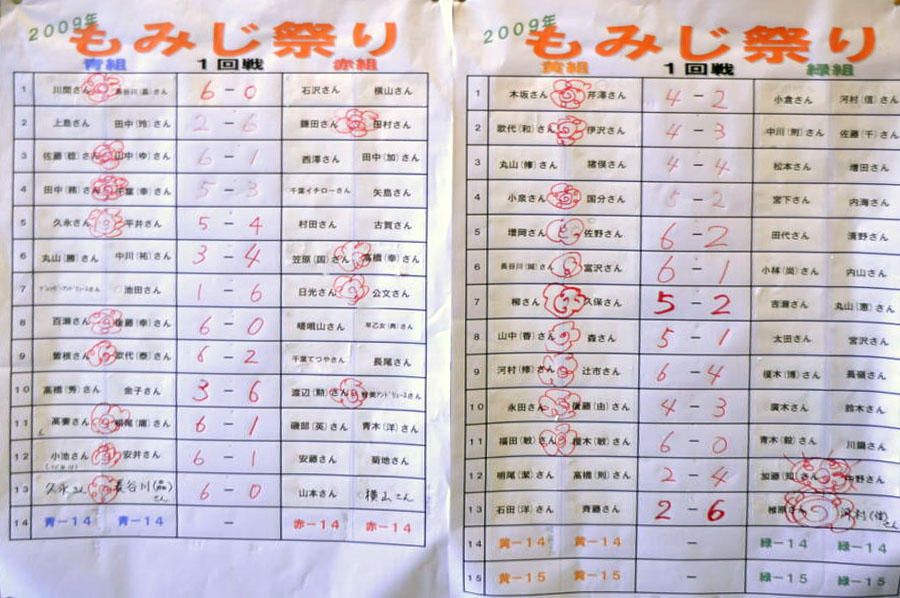 2009年
もみじ祭り
青組 1回戦 赤組
1 川間さん 長谷川(晶)さん 6-0 石沢さん 横山さん
2 上島さん 田中(玲)さん 2-6 鎌田さん 田村さん
3 佐藤(稔)さん 山中(ゆ)さん 6-1 西澤さん 田中(加)さん
4 田中(精)さん 千葉(幸)さん 5-3 千葉イチローさん 矢島さん
5 久永さん 平井さん 5-4 村田さん 古賀さん
6 丸山(勝)さん 中川(祐)さん 3-4 笠原(国)さん 高橋(幸)さん
7 池田さん 1-6 日光さん 公文さん
8 百瀬さん 佐藤(幸)さん 6-0 嵯峨山さん 早乙女(典)さん
9 曽根さん 歌代(泰)さん 6-2 千葉てつやさん 長尾さん
10 高橋(秀)さん 金子さん 3-6 渡辺(勲)さん
11 高妻さん さん 6-1 磯部(英)さん 青木(洋)さん
12 小池さん 安井さん 6-1 安藤さん 菊地さん
13 久永さん 長谷川(晶)さん 6-0 山本さん 横山さん
14 青-14 青-14 - 赤-14 赤-14
2009年
もみじ祭り
黄組 1回戦 緑組
1 木坂さん 芹澤さん 4-2 小倉さん 河村(信)さん
2 歌代(和)さん 伊沢さん 4-3 中川(則)さん 佐藤(千)さん
3 丸山(修)さん 猪俣さん 4-4 松本さん 増田さん
4 小泉さん 国分さん 5-2 宮下さん 内海さん
5 増岡さん 佐野さん 6-2 田代さん 清野さん
6 長谷川(誠)さん 富沢さん 6-1 小林(尚)さん 内山さん
7 柳さん 久保さん 5-2 吉瀬さん 丸山(恵)さん
8 山中(香)さん 森さん 5-1 太田さん 宮沢さん
9 河村(修)さん 辻市さん 6-4 榎木(博)さん 長嶺さん
10 永田さん 後藤(由)さん 4-3 廣木さん 鈴木さん
11 福田(敏)さん 榎木(敏)さん 6-0 青木(毅)さん 川鍋さん
12 明尾(潔)さん 高橋(則)さん 2-4 加藤(知)さん 中野さん
13 石田(洋)さん 斉藤さん 2-6 椎原さん 河村(信)さん
14 黄-14 黄-14 - 緑-14 緑-14
15 黄-15 黄-15 - 緑-15 緑-15